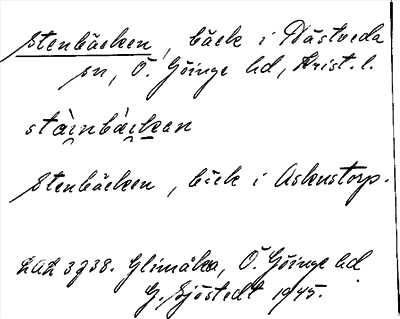 Stenbäcken, bäck i Nästveda
sn, Ö. Göinge hd, Krist. l.
stàinbæ̀kan
Stenbäcken, bäck i Askustorp.
LAL 3738. Glimåkra, Ö. Göinge hd
G. Sjöstedt 1945.